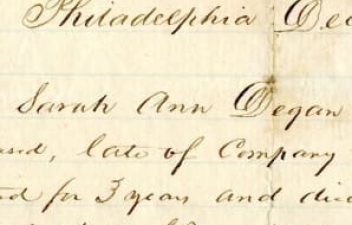 Philadelphia Dec
Sarah Ann Degan
ased, late of Company
ed for 3 years and died